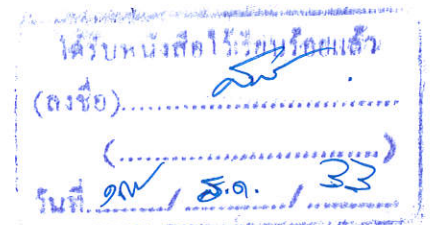 ได้รับหนังสือไว้เรียบร้อยแล้ว
(ลงชื่อ)....................
(....................)
วันที่ ........../ ธ.ค. / 33